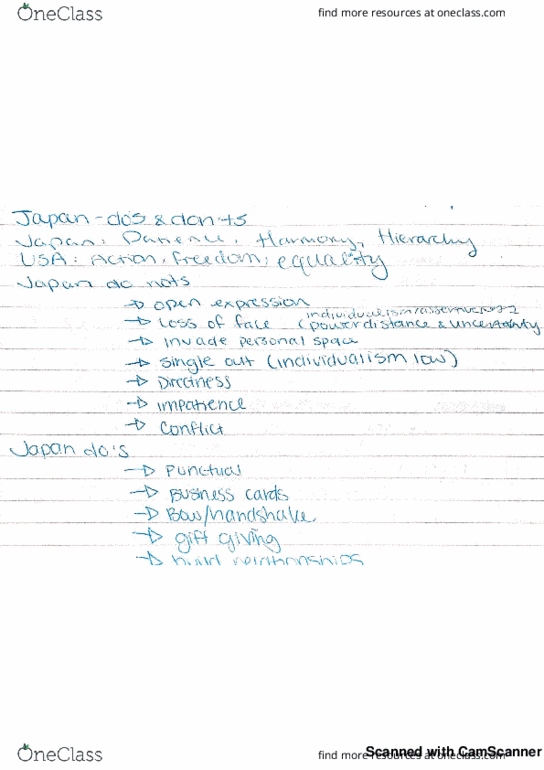 OneClass
find more resources at oneclass.com
Japan - do's & don'ts
Japan: Patience, Harmony, Hierarchy
USA: Action, freedom, equality
Japan do nots
→ open expression
individualism/assertiveness
→ Loss of face (power distance & uncertainty
→ Invade personal space
→ Single out (individualism low)
→ Directness
→ impatience
→ conflict
Japan do's
→ Punctual
→ Business cards
→ Bow/handshake
→ gift giving
→ build relationships
OneClass
find more resources at oneclass.com
Scanned with CamScanner